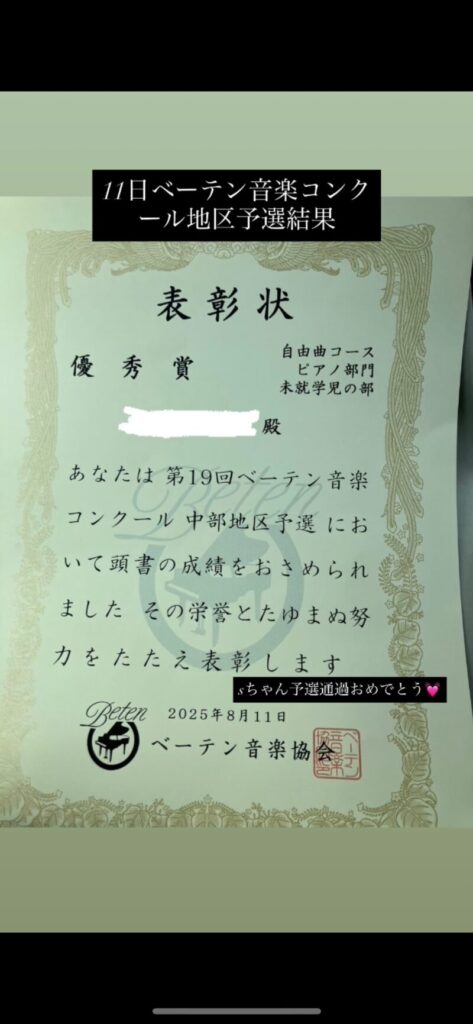 11日ベーテン音楽コンク
ール地区予選結果
表彰状
優秀賞
自由曲コース
ピアノ部門
未就学児の部
殿
あなたは 第19回ベーテン音楽
コンクール 中部地区予選 にお
いて頭書の成績をおさめられ
ました その栄誉とたゆまぬ努
力をたたえ表彰します
sちゃん予選通過おめでとう💓
Beten
2025年8月11日
ベーテン音楽協会
Beten